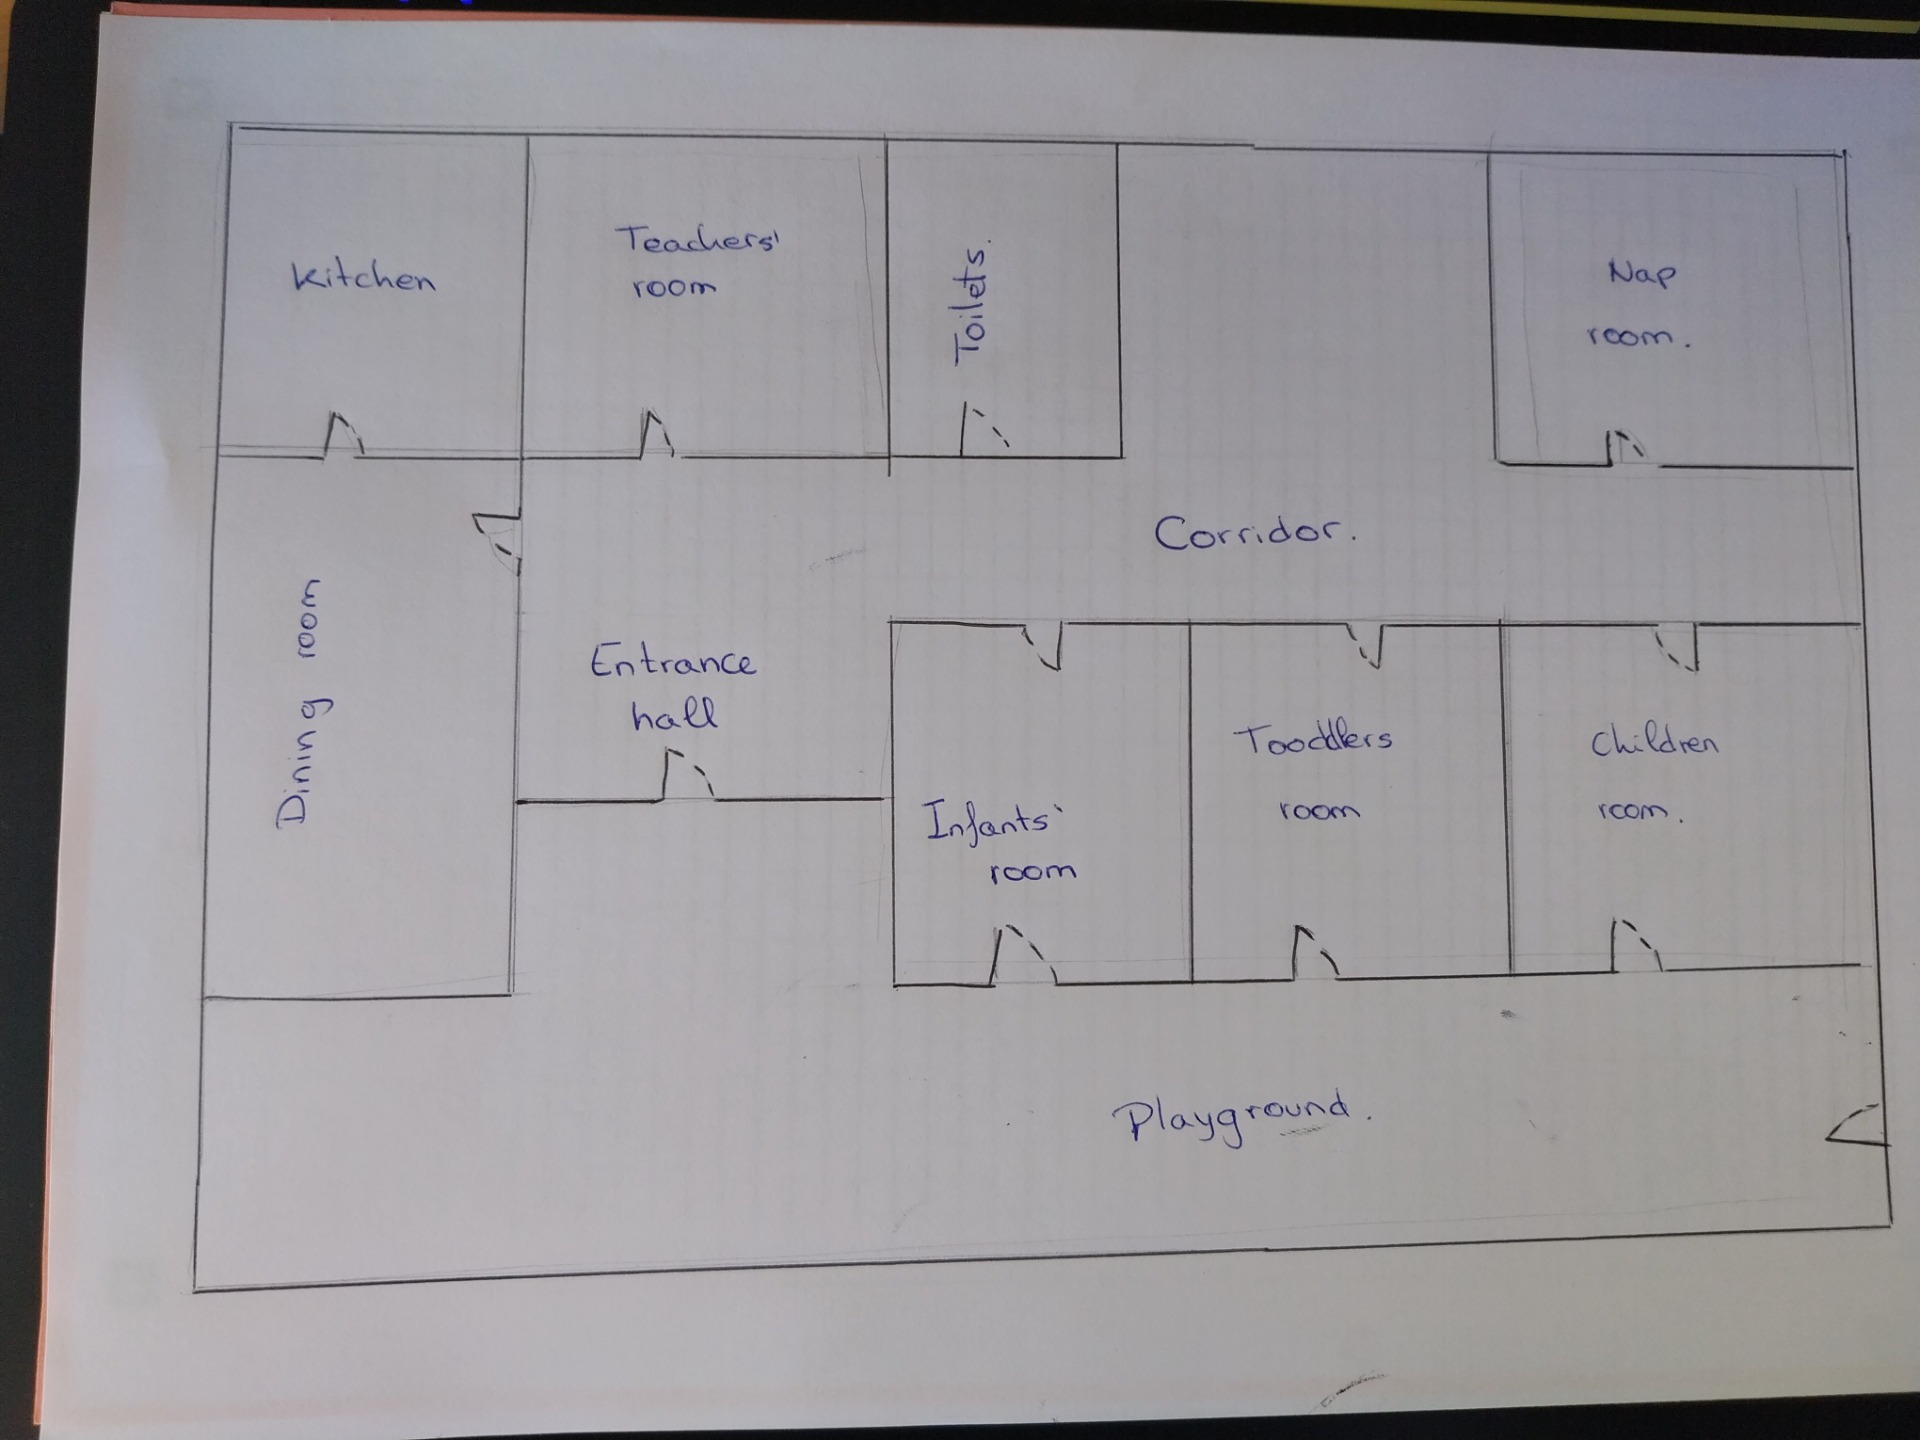 Kitchen
Teachers'
room
Toilets.
Nap
room.
Corridor.
Dining room
Entrance
hall
Infants'
room
Tooddlers
room
Children
room.
Playground.